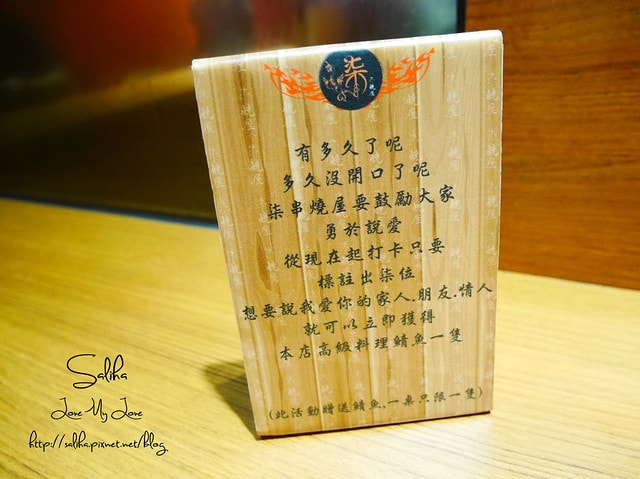 柒
燒屋
有多久了呢
多久沒開口了呢
柒串燒屋要鼓勵大家
勇於說愛
從現在起打卡只要
標註出柒位
想要說我愛你的家人.朋友.情人
就可以立即獲得
本店高級料理鯖魚一隻
(此活動贈送鯖魚,一桌只限一隻)
Saliha
Love My Love
http://saliha.pixnet.net/blog